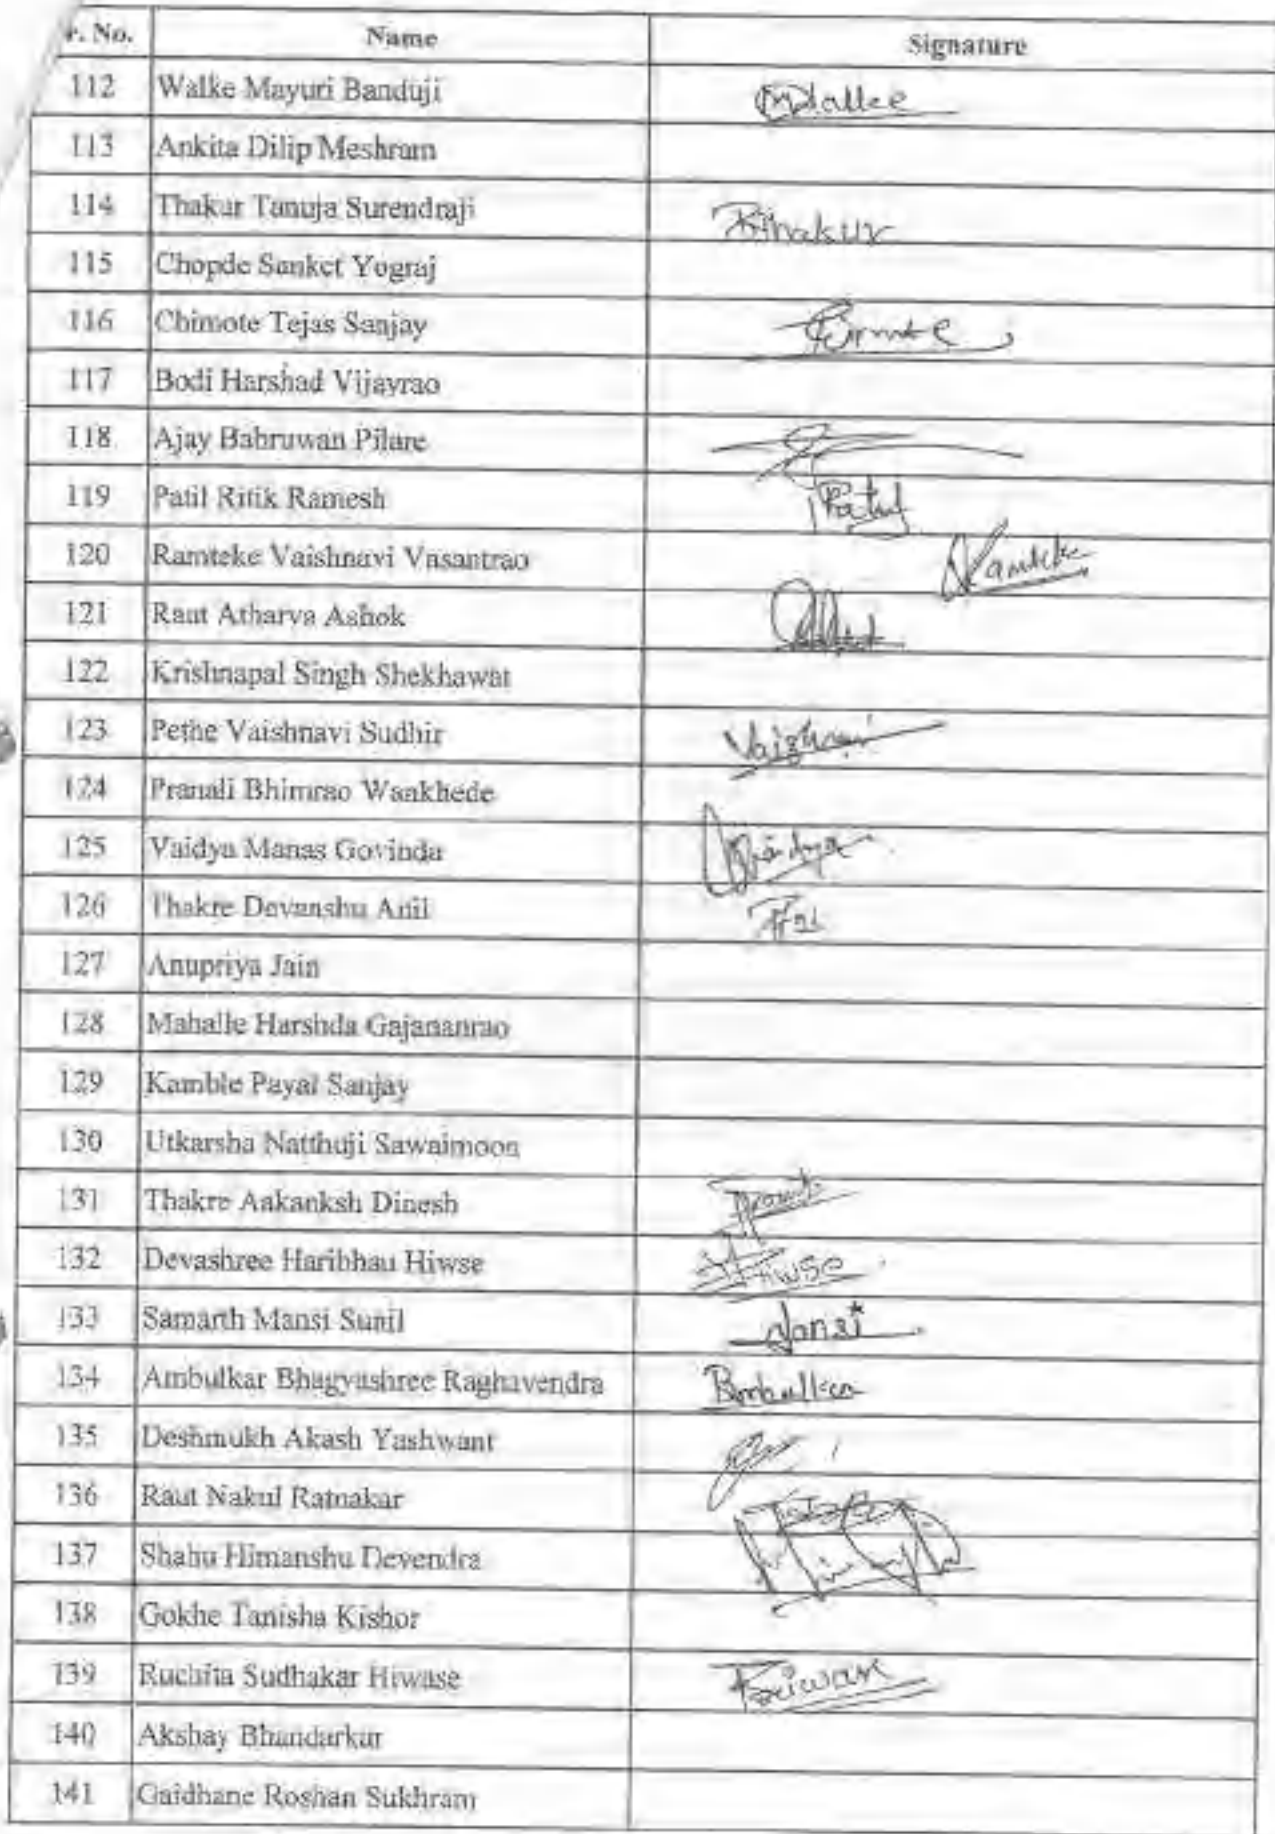 r. No. Name Signature
112 Walke Mayuri Banduji
113 Ankita Dilip Meshram
114 Thakur Tanuja Surendraji Thakur
115 Chopde Sanket Yograj
116 Chimote Tejas Sanjay
117 Bodi Harshad Vijayrao
118 Ajay Babruwan Pilare
119 Patil Ritik Ramesh Patil
120 Ramteke Vaishnavi Vasantrao Ramteke
121 Raut Atharva Ashok
122 Krishnapal Singh Shekhawat
123 Pethe Vaishnavi Sudhir Vaishnavi
124 Pranali Bhimrao Wankhede
125 Vaidya Manas Govinda Vaidya
126 Thakre Devanshu Anil
127 Anupriya Jain
128 Mahalle Harshda Gajananrao
129 Kamble Payal Sanjay
130 Utkarsha Natthuji Sawaimoon
131 Thakre Aakanksh Dinesh
132 Devashree Haribhau Hiwse Hiwse
133 Samarth Mansi Sunil
134 Ambulkar Bhagyashree Raghavendra
135 Deshmukh Akash Yashwant
136 Raut Nakul Ratnakar
137 Shahu Himanshu Devendra
138 Gokhe Tanisha Kishor
139 Ruchita Sudhakar Hiwase
140 Akshay Bhandarkar
141 Gaidhane Roshan Sukhram